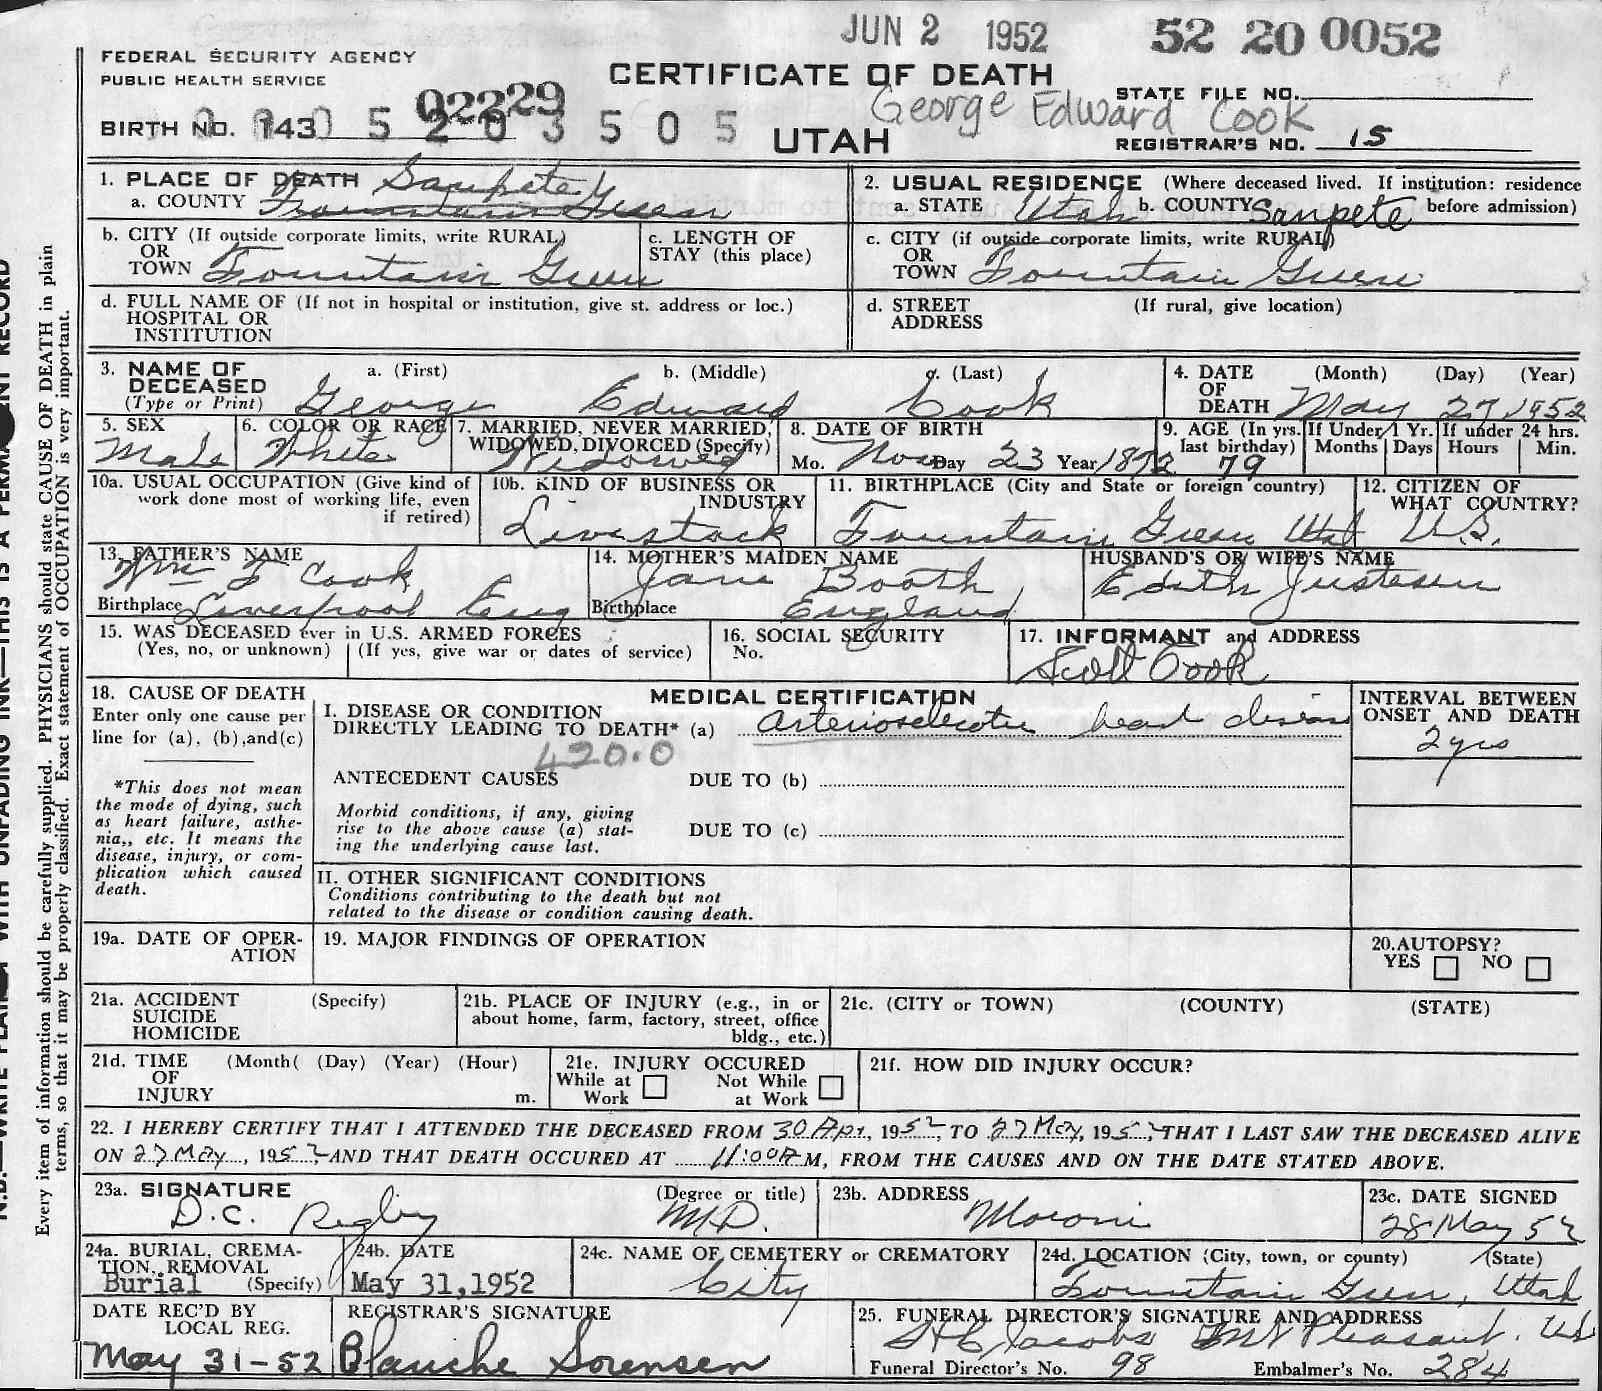 JUN 2 1952
52 20 0052
FEDERAL SECURITY AGENCY
PUBLIC HEALTH SERVICE
CERTIFICATE OF DEATH
STATE FILE NO.
George Edward Cook
02229
BIRTH NO. 143 5 2 0 3 5 0 5
UTAH
REGISTRAR'S NO. 15
1. PLACE OF DEATH Sanpete
a. COUNTY Fountain Green
2. USUAL RESIDENCE (Where deceased lived. If institution: residence
a. STATE Utah b. COUNTY Sanpete before admission)
b. CITY (If outside corporate limits, write RURAL)
OR
TOWN Fountain Green
c. LENGTH OF
STAY (this place)
c. CITY (if outside corporate limits, write RURAL)
OR
TOWN Fountain Green
d. FULL NAME OF (If not in hospital or institution, give st. address or loc.)
HOSPITAL OR
INSTITUTION
d. STREET (If rural, give location)
ADDRESS
3. NAME OF a. (First) b. (Middle) c. (Last)
DECEASED
(Type or Print) George Edward Cook
4. DATE (Month) (Day) (Year)
OF
DEATH May 27 1952
5. SEX
Male
6. COLOR OR RACE
White
7. MARRIED, NEVER MARRIED,
WIDOWED, DIVORCED (Specify)
Widowed
8. DATE OF BIRTH
Mo. Nov Day 23 Year 1872
9. AGE (In yrs.
last birthday)
79
If Under 1 Yr.
Months Days
If under 24 hrs.
Hours Min.
10a. USUAL OCCUPATION (Give kind of
work done most of working life, even
if retired)
10b. KIND OF BUSINESS OR
INDUSTRY
Livestock
11. BIRTHPLACE (City and State or foreign country)
Fountain Green Utah
12. CITIZEN OF
WHAT COUNTRY?
U.S.
13. FATHER'S NAME
Wm F Cook
Birthplace Liverpool Eng
14. MOTHER'S MAIDEN NAME
Jane Booth
Birthplace England
HUSBAND'S OR WIFE'S NAME
Edith Justesen
15. WAS DECEASED ever in U.S. ARMED FORCES
(Yes, no, or unknown) (If yes, give war or dates of service)
16. SOCIAL SECURITY
No.
17. INFORMANT and ADDRESS
Scott Cook
18. CAUSE OF DEATH
Enter only one cause per
line for (a), (b), and (c)
*This does not mean
the mode of dying, such
as heart failure, asthe-
nia,, etc. It means the
disease, injury, or com-
plication which caused
death.
MEDICAL CERTIFICATION
I. DISEASE OR CONDITION
DIRECTLY LEADING TO DEATH* (a) Arteriosclerotic heart disease
420.0
ANTECEDENT CAUSES DUE TO (b)
Morbid conditions, if any, giving
rise to the above cause (a) stat-
ing the underlying cause last.
DUE TO (c)
INTERVAL BETWEEN
ONSET AND DEATH
2 yrs
II. OTHER SIGNIFICANT CONDITIONS
Conditions contributing to the death but not
related to the disease or condition causing death.
19a. DATE OF OPER-
ATION
19. MAJOR FINDINGS OF OPERATION
20. AUTOPSY?
YES NO
21a. ACCIDENT (Specify)
SUICIDE
HOMICIDE
21b. PLACE OF INJURY (e.g., in or
about home, farm, factory, street, office
bldg., etc.)
21c. (CITY or TOWN) (COUNTY) (STATE)
21d. TIME (Month( (Day) (Year) (Hour)
OF
INJURY m.
21e. INJURY OCCURED
While at Not While
Work at Work
21f. HOW DID INJURY OCCUR?
22. I HEREBY CERTIFY THAT I ATTENDED THE DECEASED FROM 30 Apr, 1952, TO 27 May, 1952, THAT I LAST SAW THE DECEASED ALIVE
ON 27 May, 1952, AND THAT DEATH OCCURED AT 11:00A M, FROM THE CAUSES AND ON THE DATE STATED ABOVE.
23a. SIGNATURE (Degree or title)
D.C. Rigby M.D.
23b. ADDRESS
Moroni
23c. DATE SIGNED
28 May 52
24a. BURIAL, CREMA-
TION, REMOVAL
Burial (Specify)
24b. DATE
May 31, 1952
24c. NAME OF CEMETERY or CREMATORY
City
24d. LOCATION (City, town, or county) (State)
Fountain Green, Utah
DATE REC'D BY
LOCAL REG.
May 31-52
REGISTRAR'S SIGNATURE
Blanche Sorensen
25. FUNERAL DIRECTOR'S SIGNATURE AND ADDRESS
Jacobs Mt Pleasant, Ut
Funeral Director's No. 98 Embalmer's No. 284
Every item of information should be carefully supplied. PHYSICIANS should state CAUSE OF DEATH in plain
terms, so that it may be properly classified. Exact statement of OCCUPATION is very important.
WITH UNFADING INK—THIS IS A PERMANENT RECORD